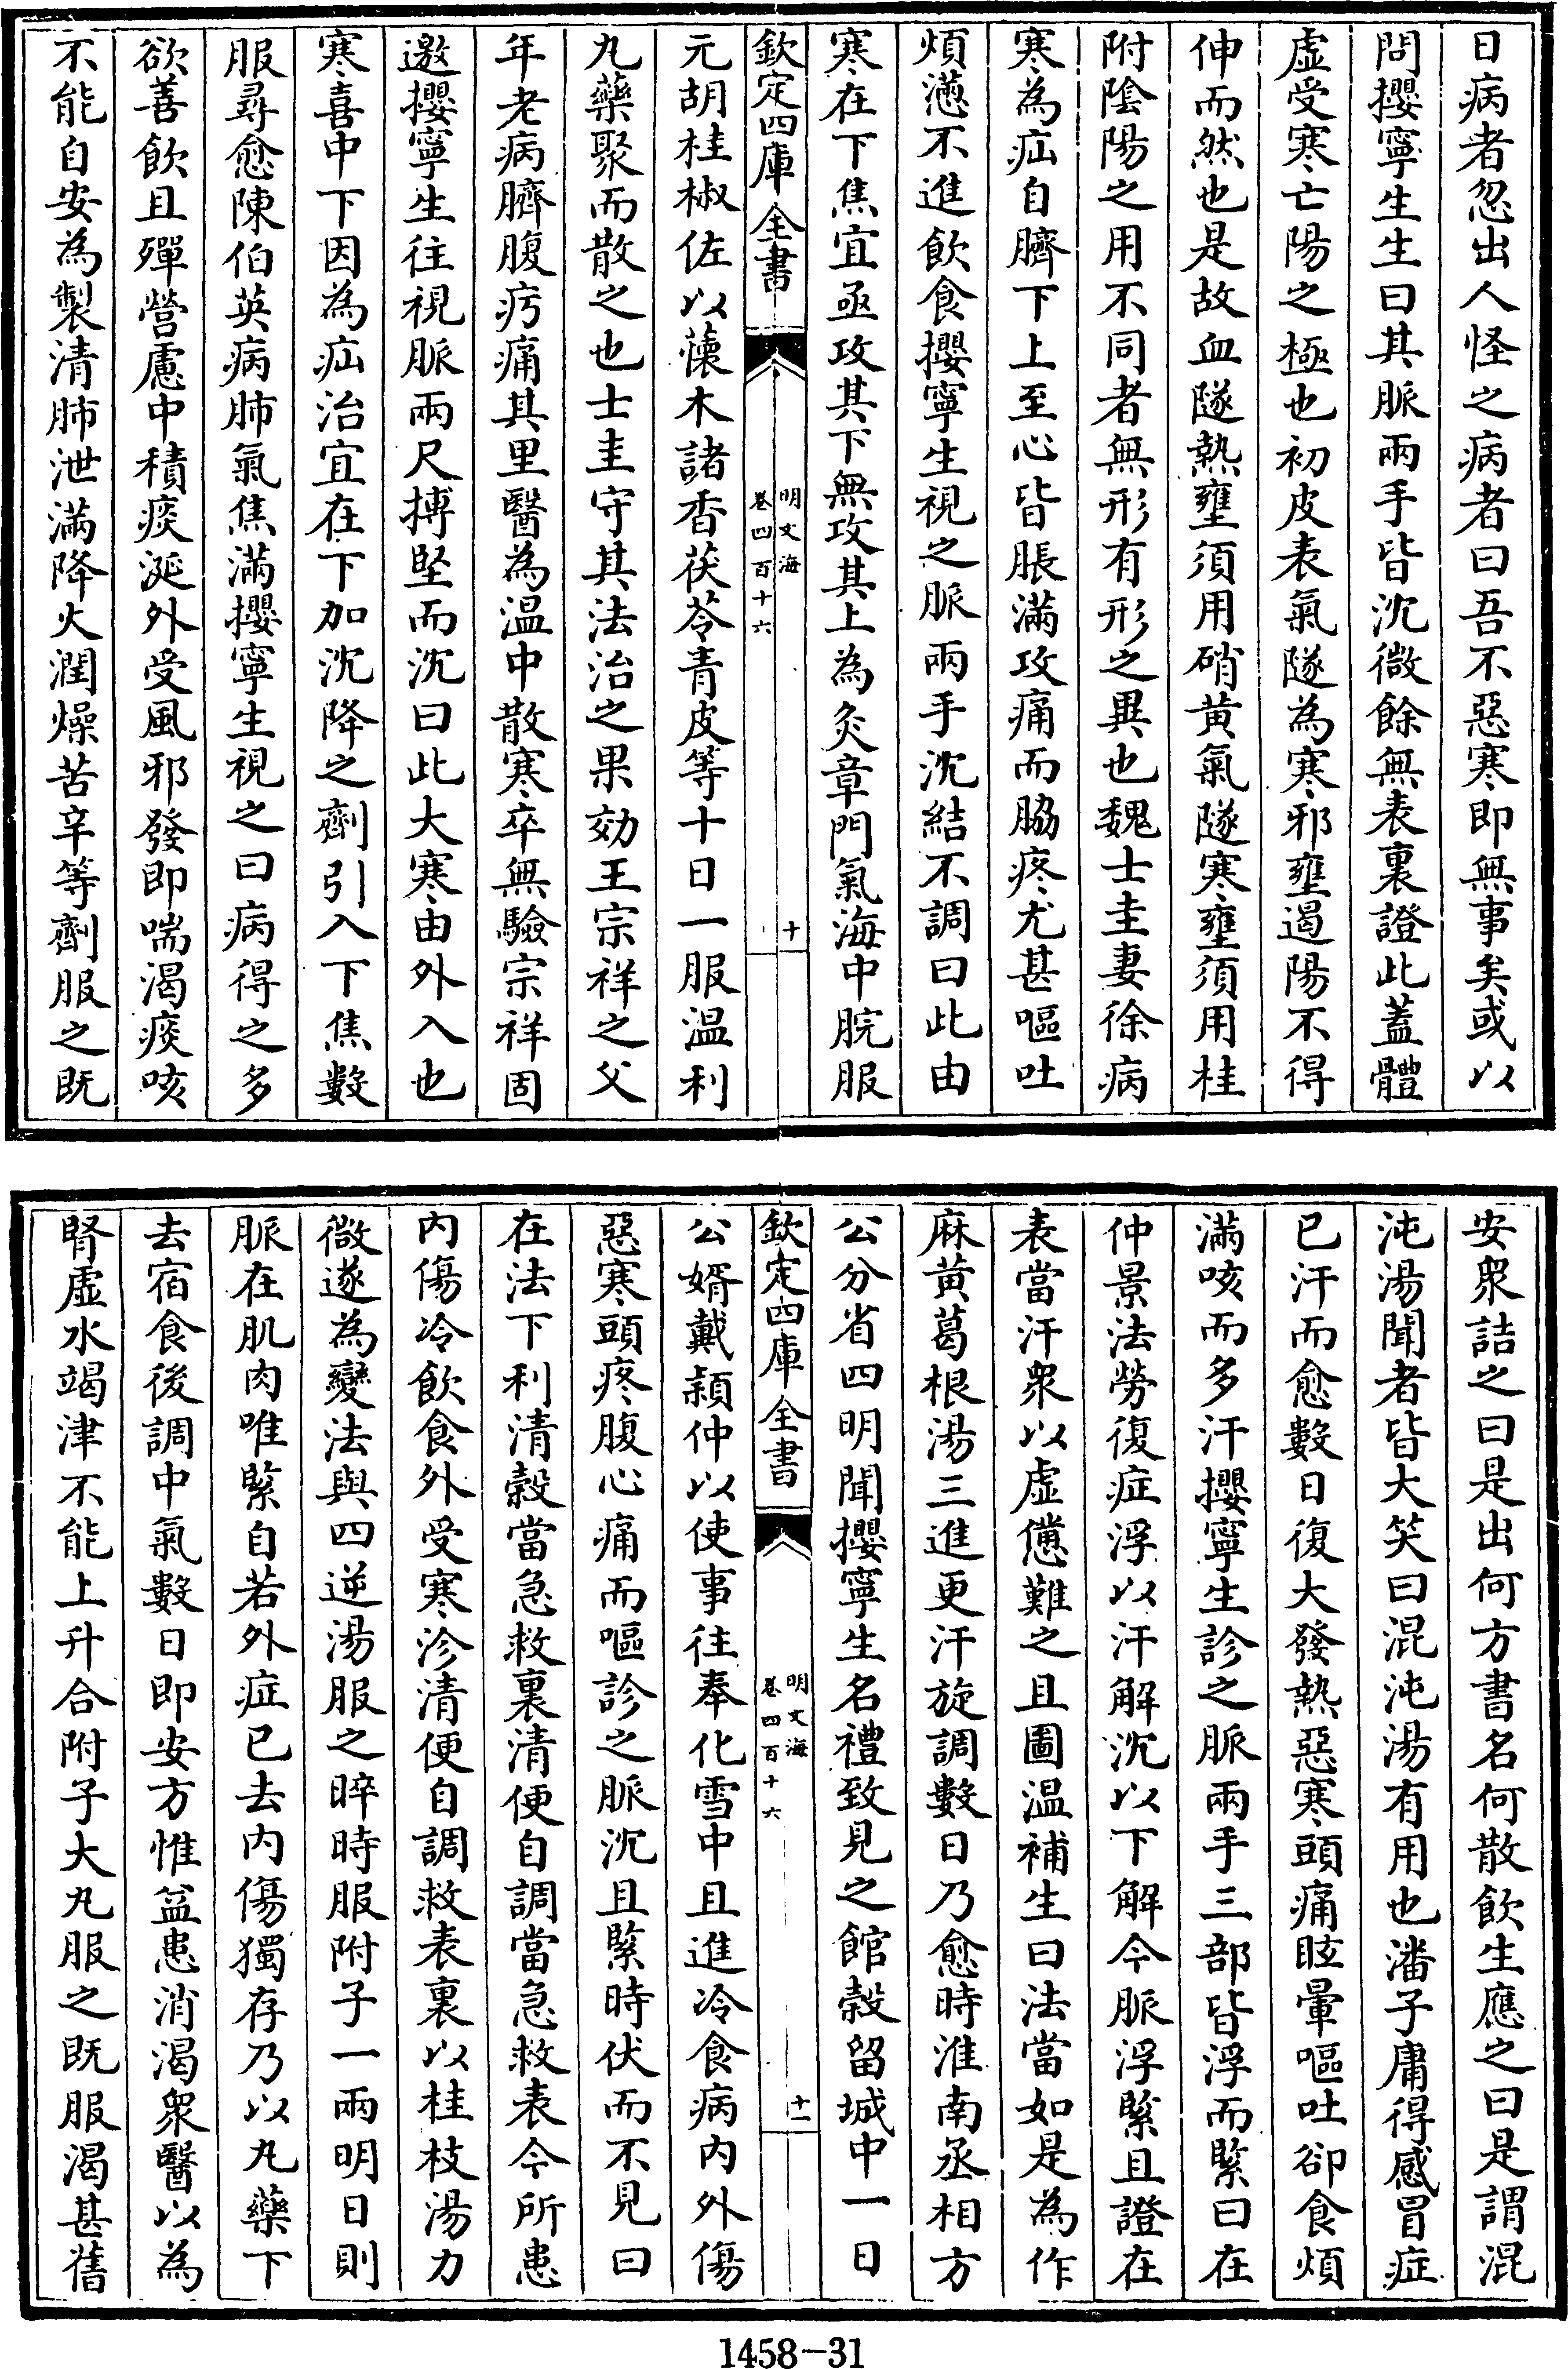 日病者忽出人怪之病者曰吾不惡寒即無事矣或以
問攖寧生生曰其脈兩手皆沉微餘無表裏證此蓋體
虛受寒亡陽之極也初皮表氣隧為寒邪壅遏陽不得
伸而然也是故血隧熱壅須用硝黄氣隧寒壅須用桂
附陰陽之用不同者無形有形之異也魏士圭妻徐病
寒為疝自臍下上至心皆脹滿攻痛而脇疼尤甚嘔吐
煩懣不進飲食攖寧生視之脈兩手沉結不調曰此由
寒在下焦宜亟攻其下無攻其上為灸章門氣海中脘服
欽定四庫全書
明文海
卷四百十六
十
元胡桂椒佐以蘹木諸香茯苓青皮等十日一服温利
丸藥聚而散之也士圭守其法治之果效王宗祥之父
年老病臍腹疞痛其里醫為温中散寒卒無驗宗祥固
邀攖寧生往視脈兩尺搏堅而沉曰此大寒由外入也
寒喜中下因為疝治宜在下加沉降之劑引入下焦數
服尋愈陳伯英病肺氣焦滿攖寧生視之曰病得之多
欲善飲且殫營慮中積痰涎外受風邪發即喘渴痰咳
不能自安為製清肺泄滿降火潤燥苦辛等劑服之既
安衆詰之曰是出何方書名何散飲生應之曰是謂混
沌湯聞者皆大笑曰混沌湯有用也潘子庸得感冒症
已汗而愈數日復大發熱惡寒頭痛眩暈嘔吐卻食煩
滿咳而多汗攖寧生診之脈兩手三部皆浮而緊曰在
仲景法勞復症浮以汗解沉以下解今脈浮緊且證在
表當汗衆以虛憊難之且圖温補生曰法當如是為作
麻黄葛根湯三進更汗旋調數日乃愈時淮南丞相方
公分省四明聞攖寧生名禮致見之館穀留城中一日
欽定四庫全書
明文海
卷四百十六
十一
公婿戴穎仲以使事往奉化雪中且進冷食病内外傷
惡寒頭疼腹心痛而嘔診之脈沉且緊時伏而不見曰
在法下利清穀當急救裏清便自調當急救表今所患
内傷冷飲食外受寒沴清便自調救表裏以桂枝湯力
微遂為變法與四逆湯服之晬時服附子一兩明日則
脈在肌肉唯緊自若外症已去内傷獨存乃以丸藥下
去宿食後調中氣數日即安方惟益患消渴衆醫以為
腎虛水竭津不能上升合附子大丸服之既服渴甚舊
1458-31